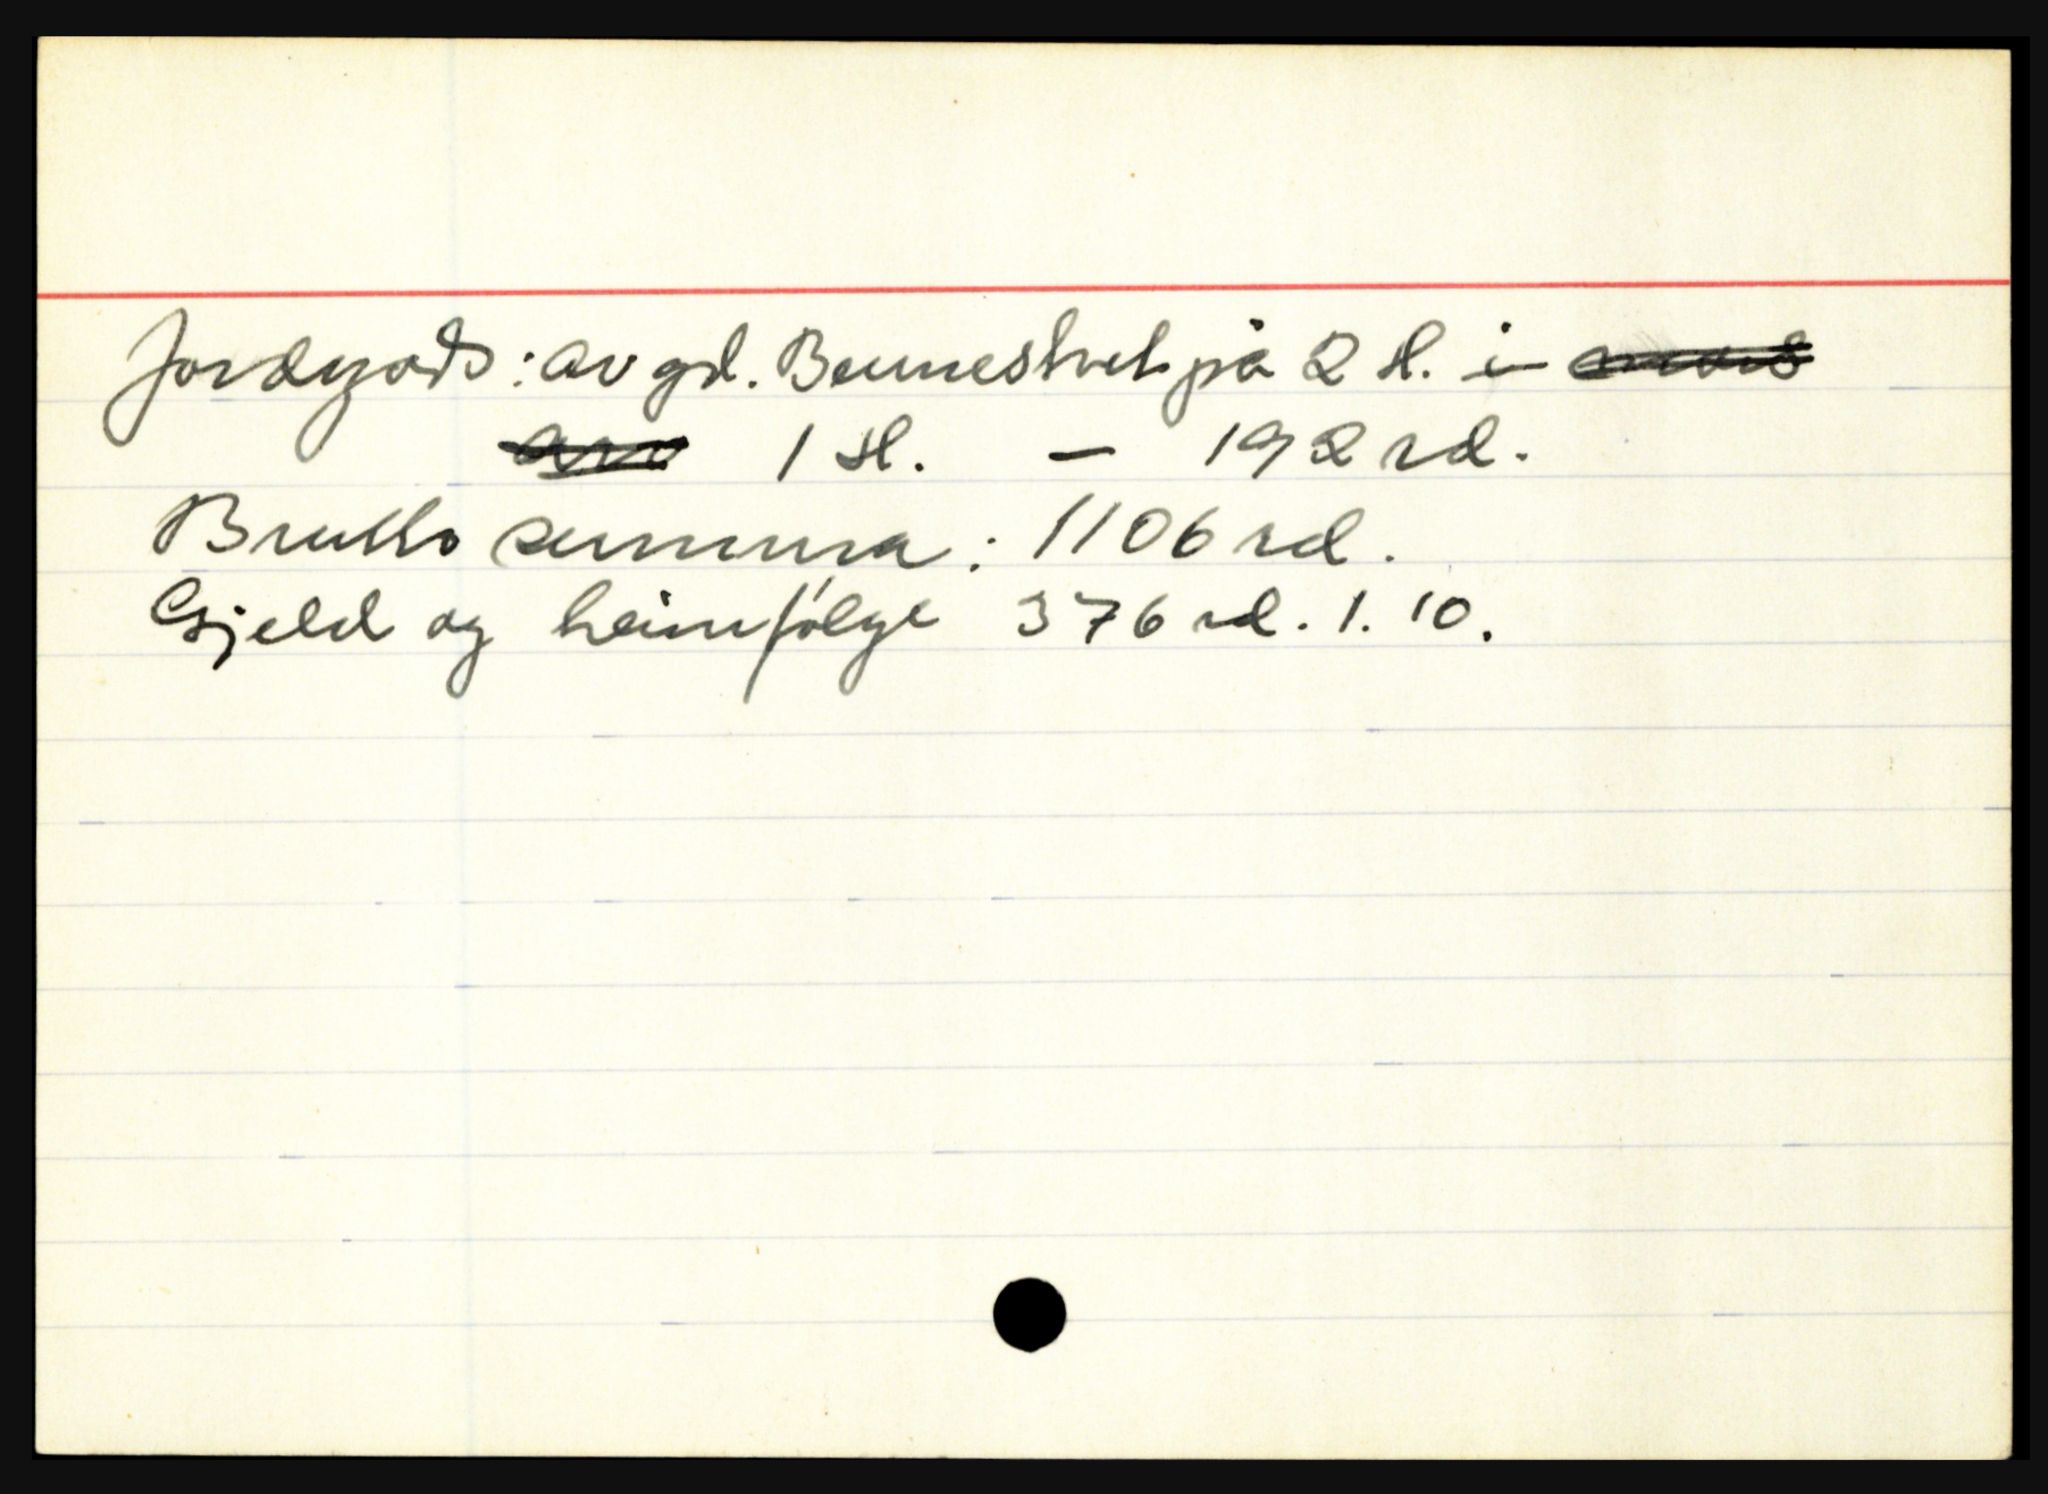 Jordgods: av gd. Bennestvet på 2 sl. i
1 sl. - 192 rd.
Brutto summa: 1106 rd.
Gjeld og heimfølge 376 rd. 1. 10.